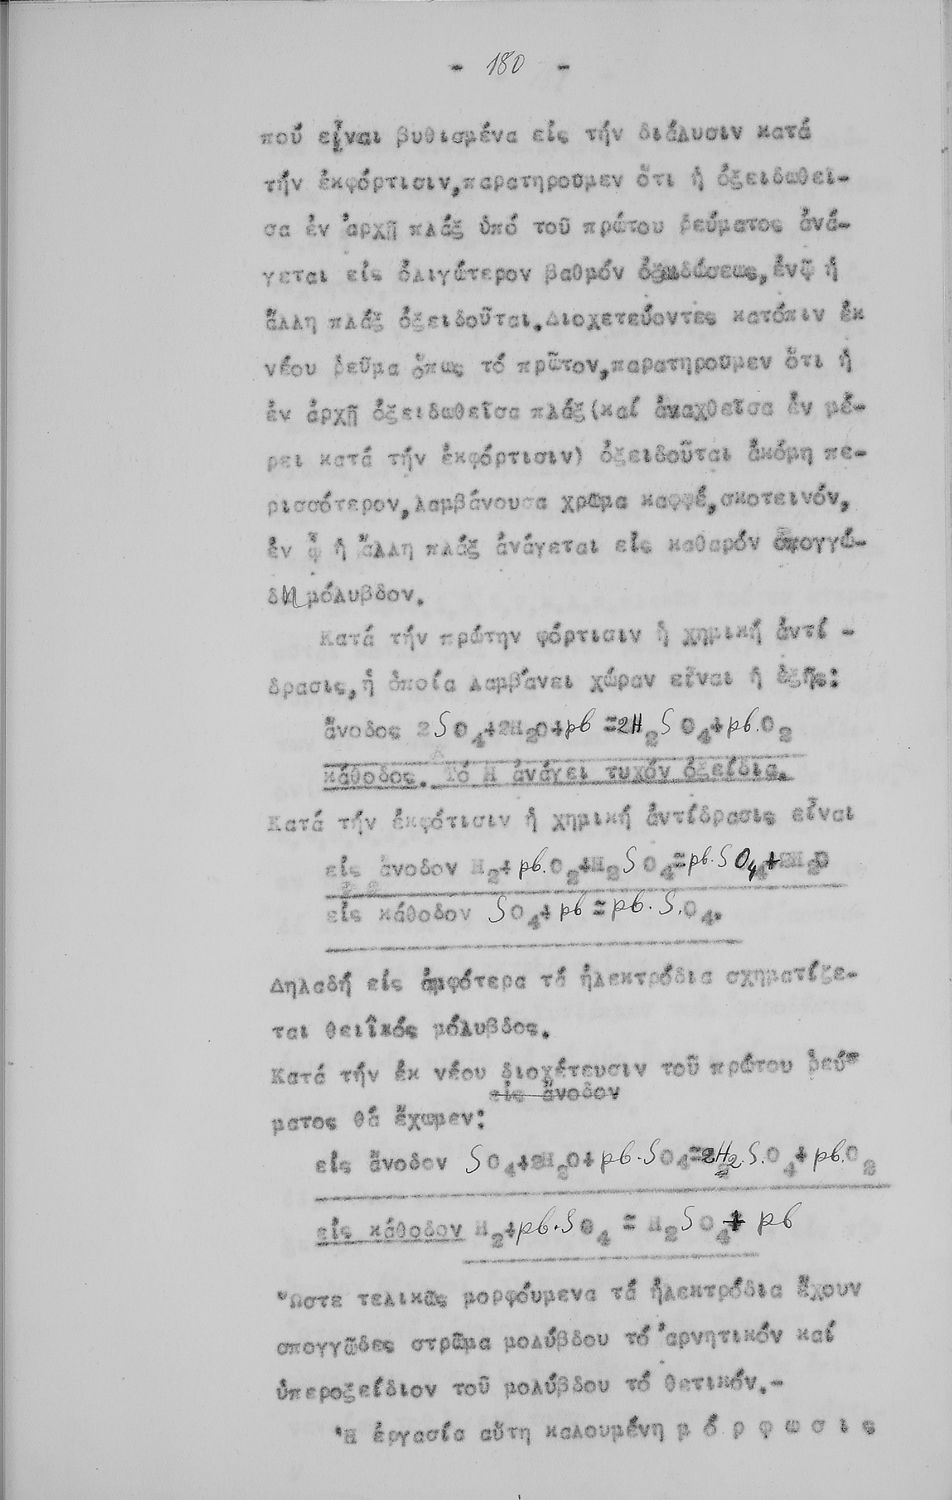 - 180 -
πού εἶναι βυθισμένα είς τήν διάλυσιν κατά
τήν ἐκφόρτισιν,παρατηροῦμεν ὅτι ἡ ὀξειδωθεῖ-
σα ἐν ἀρχῇ πλάξ ὑπό τοῦ πρώτου ρεύματος ἀνά-
γεται είς ὀλιγώτερον βαθμόν ὀξειδώσεως,ἐνῷ ἡ
ἄλλη πλάξ ὀξειδοῦται.Διοχετεύοντες κατόπιν ἐκ
νέου ρεῦμα ὅπως τό πρῶτον,παρατηροῦμεν ὅτι ἡ
ἐν ἀρχῇ ὀξειδωθεῖσα πλάξ(καί ἀναχθεῖσα ἐν μέ-
ρει κατά τήν ἐκφόρτισιν) ὀξειδοῦται ἀκόμη πε-
ρισσότερον,λαμβάνουσα χρῶμα καφφέ,σκοτεινόν,
ἐν ᾧ ἡ ἄλλη πλάξ ἀνάγεται είς καθαρόν σπογγώ-
δη μόλυβδον.
Κατά τήν πρώτην φόρτισιν ἡ χημική ἀντί -
δρασις,ἡ ὁποία λαμβάνει χώραν εἶναι ἡ ἑξῆς:
ἄνοδος 2SO4+2H2O+pb =2H2SO4+pb.O2
κάθοδος. Τό Η ἀνάγει τυχόν ὀξείδια.
Κατά τήν ἐκφότισιν ἡ χημική ἀντίδρασις εἶναι
είς ἄνοδον H2+pb.O2+H2SO4=pb.SO4+2H2O
είς κάθοδον SO4+pb=pb.S.O4.
Δηλαδή είς ἀμφότερα τά ἠλεκτρόδια σχηματίζε-
ται θειϊκός μόλυβδος.
Κατά τήν ἐκ νέου διοχέτευσιν τοῦ πρώτου ρεύ-
είς ἄνοδον
ματος θά ἔχωμεν:
είς ἄνοδον SO4+2H2O+pb.SO4=2H2.S.O4+pb.O2
είς κάθοδον H2+pb.SO4 = H2SO4+ pb
Ὥστε τελικῶς μορφούμενα τά ἠλεκτρόδια ἔχουν
σπογγῶδες στρῶμα μολύβδου τό ἀρνητικόν καί
ὑπεροξείδιον τοῦ μολύβδου τό θετικόν.-
Ἡ ἐργασία αὕτη καλουμένη μ ό ρ φ ω σ ι ς